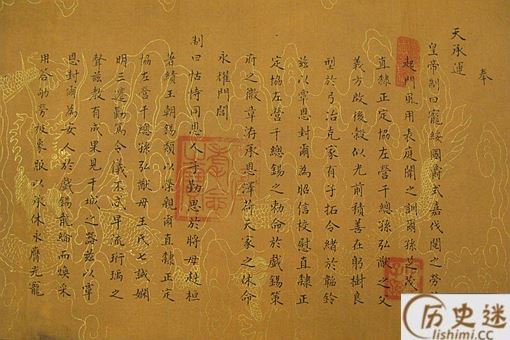 奉
天承運
皇帝制曰寵綏國爵式嘉伐閱之勞
起門風用表庭闈之訓爾孫芝茂
直隸正定協左營千總孫弘猷之父
義方啟後穀似光前積善在躬樹良
型於弓冶克家有子拓令緒於韜鈐
茲以覃恩封爾為昭信校尉直隸正
定協左營千總錫之勅命於戲錫策
府之徽章洊承恩澤荷天家之休命
永耀門閭
制曰怙恃同恩人子勤思於將母赳桓
著績王朝錫類以榮親爾直隸正定
協左營千總孫弘猷母王氏七誡嫻
明三遷勤篤令儀不忒早流珩瑀之
聲慈教有成果見干城之器茲以覃
恩封爾為安人於戲錫龍綸而煥采
用答劬勞被象服以承休永膺光寵
历史迷
lishimi.cc